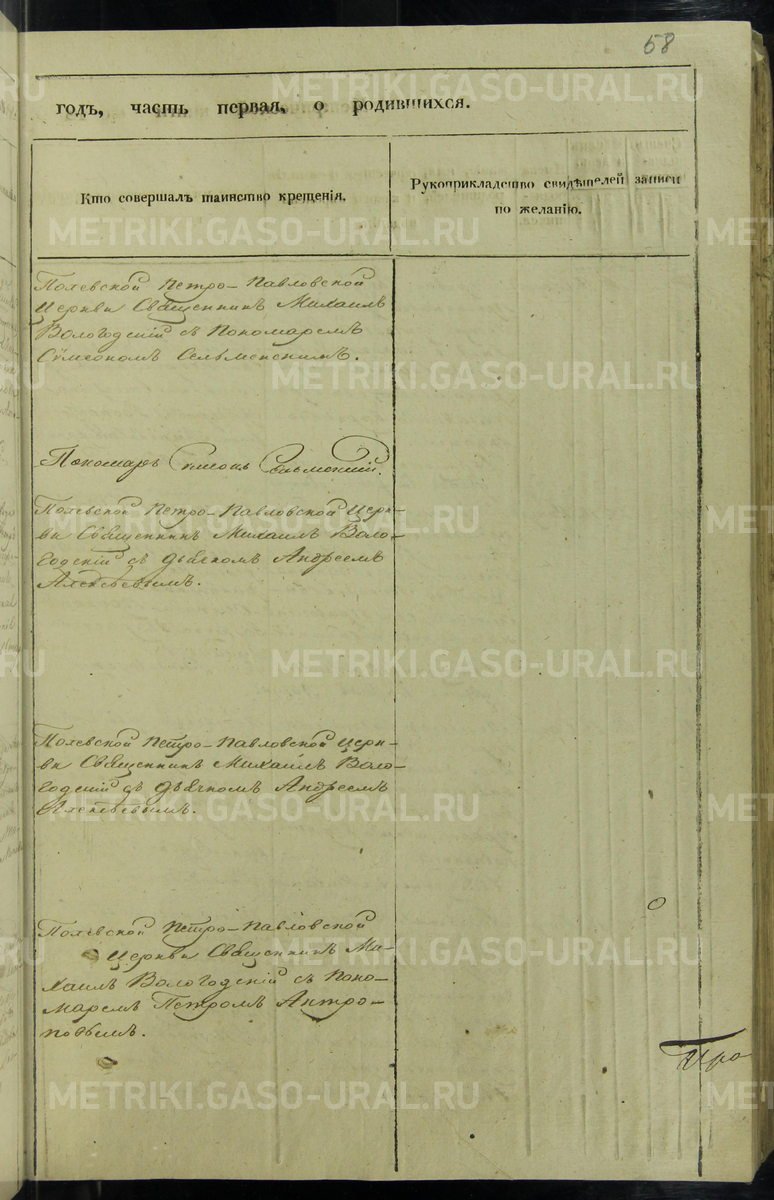 58
годъ, часть первая, о родившихся.
Кто совершалъ таинство крещенія.
Рукоприкладство свидѣтелей записи
по желанію.
Полевской Петро-Павловской
Церкви Священникъ Михаилъ
Вологодскій съ Пономаремъ
Сѵмеономъ Сельменскимъ.
Пономарь Симеонъ Сельменскій.
Полевской Петро-Павловской Церк-
ви Священникъ Михаилъ Воло-
годскій съ дьячкомъ Андреемъ
Алексѣевымъ.
Полевской Петро-Павловской Церк-
ви Священникъ Михаилъ Воло-
годскій съ дьячкомъ Андреемъ
Алексѣевымъ.
Полевской Петро-Павловской
Церкви Священникъ Ми-
хаилъ Вологодскій съ Поно-
маремъ Петромъ Антро-
повымъ.
METRIKI.GASO-URAL.RU